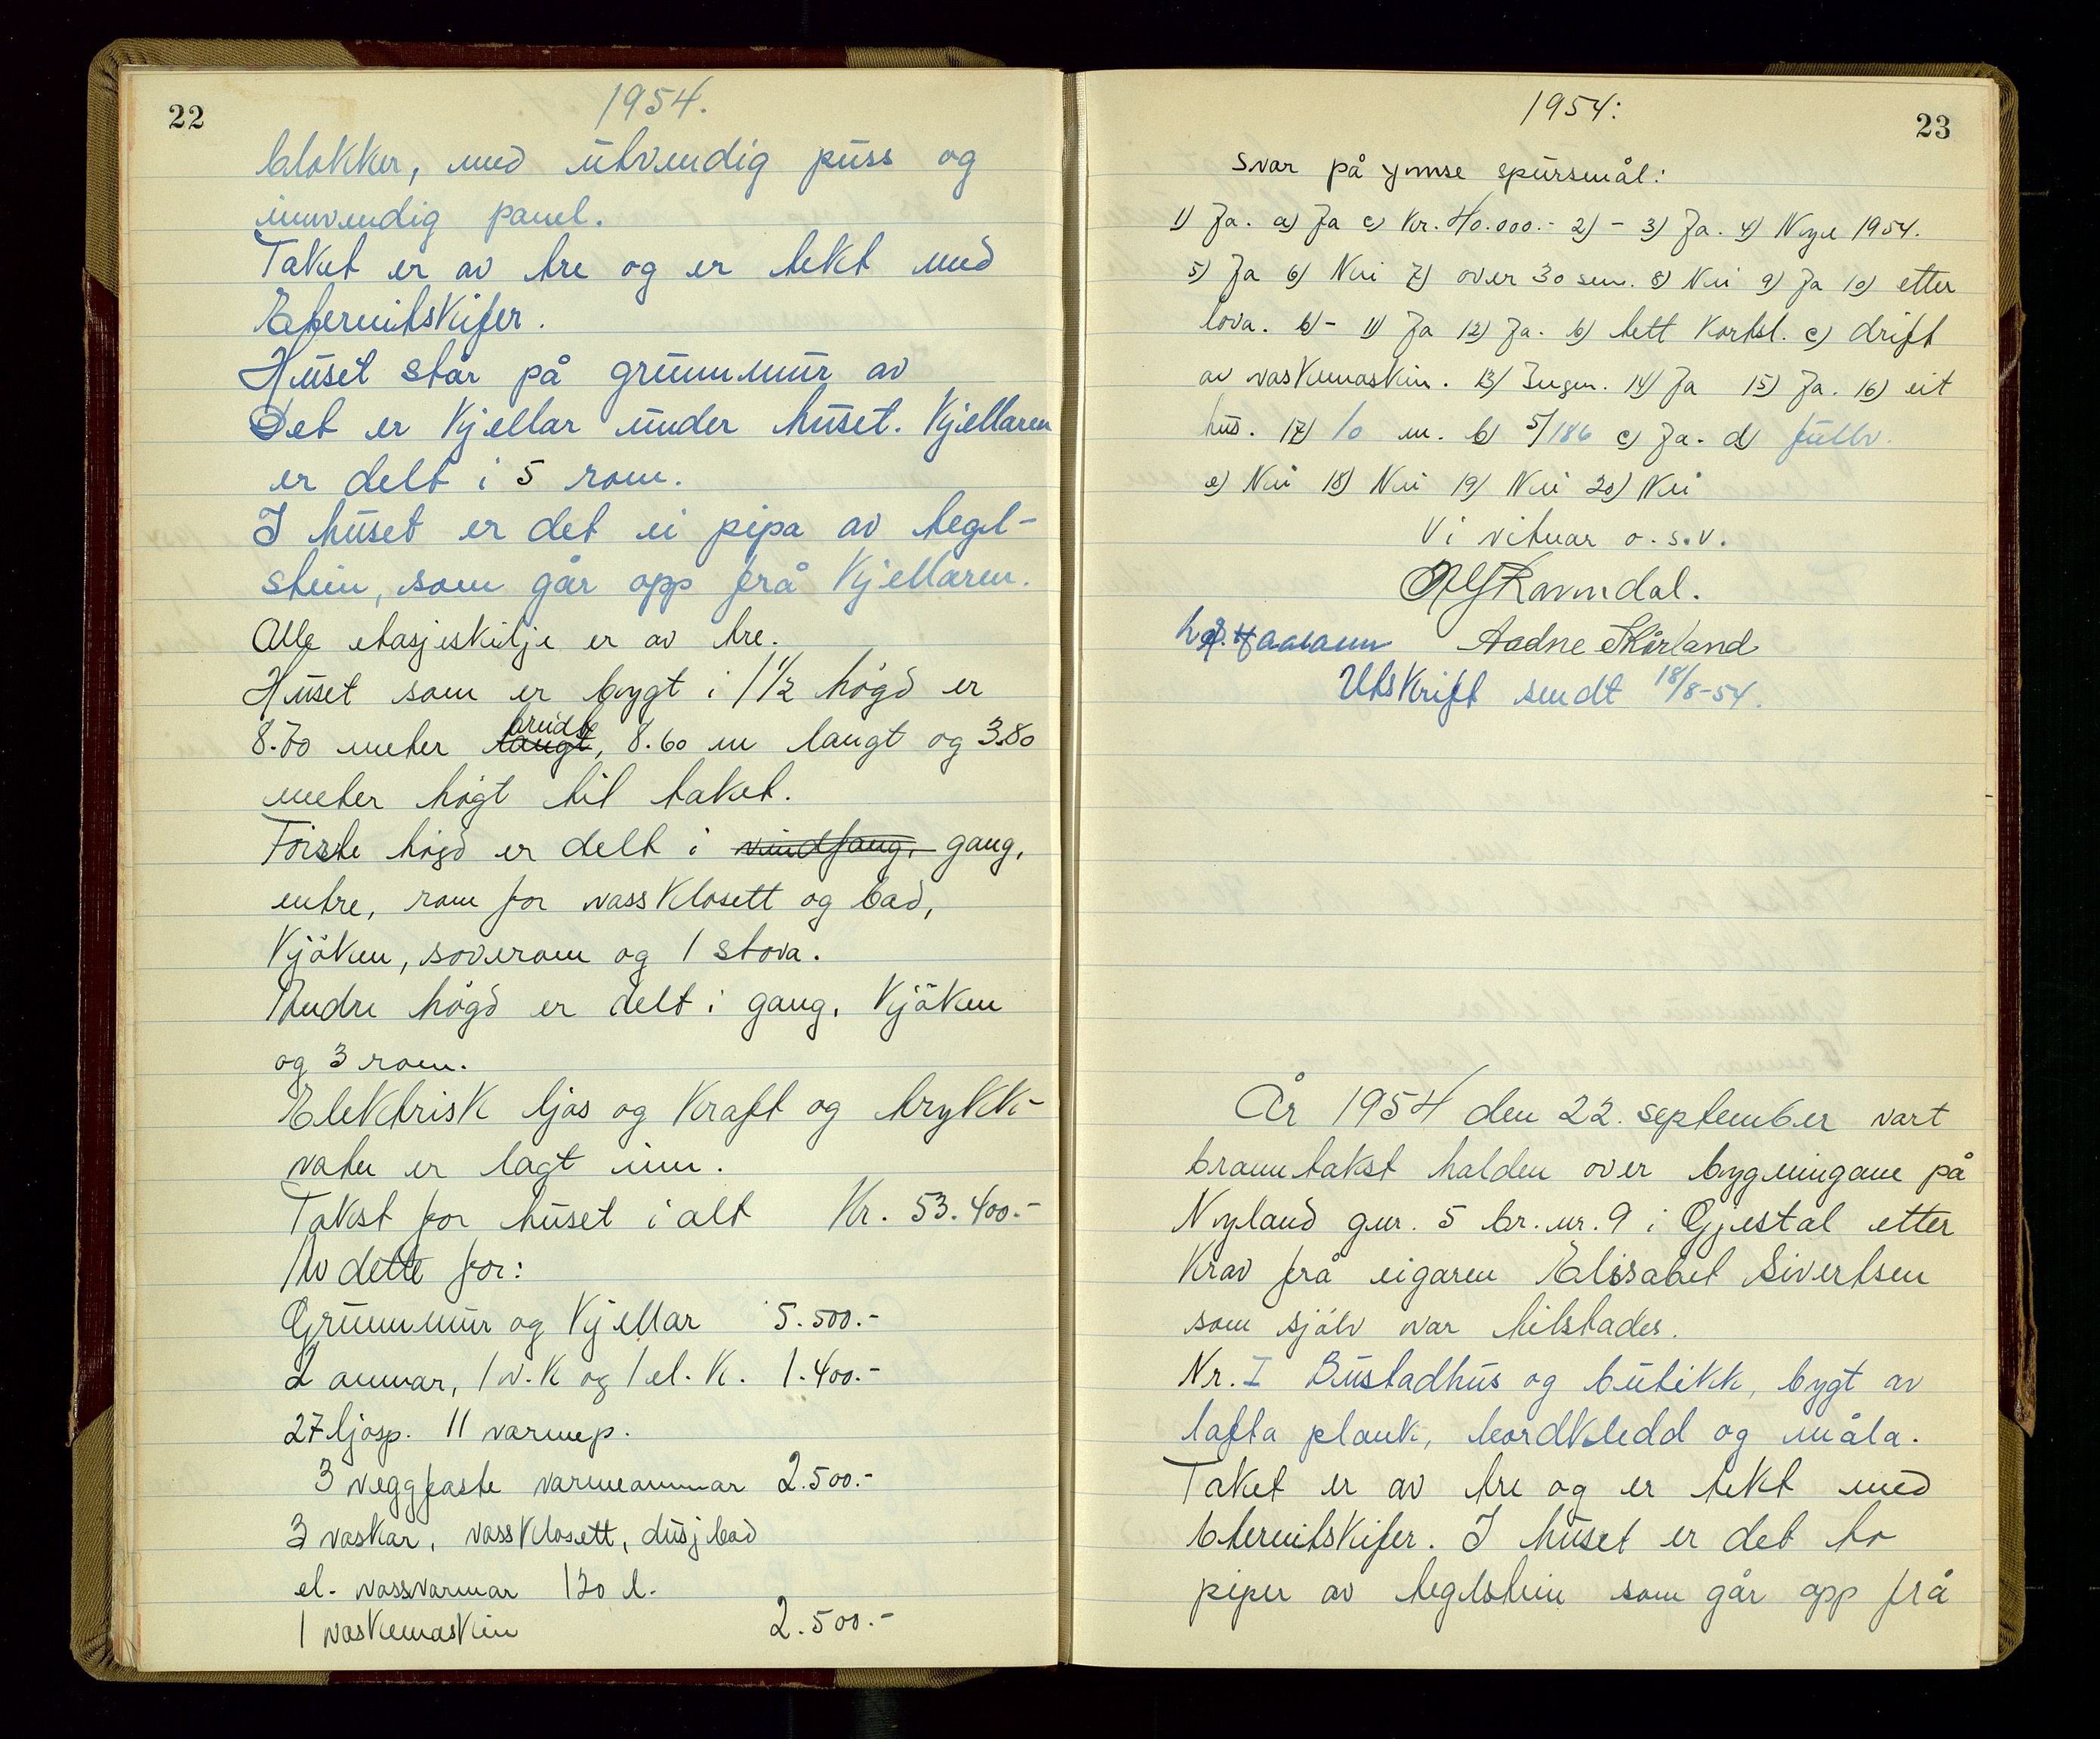 22
1954.
blokker, med utvendig puss og
innvendig panel.
Taket er av tre og er tekt med
Eternitskifer.
Huset står på grunnmur av
Det er kjellar under huset. Kjellaren
er delt i 5 rom.
I huset er det ei pipa av tegl-
stein, som går opp frå kjellaren.
Alle etasjeskilje er av tre.
Huset som er bygt i 1 1/2 högd er
8.70 meter langt breidt, 8.60 m langt og 3.80
meter högt til taket.
Förste högd er delt i vindfang, gang,
entre, rom for vassklosett og bad,
kjöken, soverom og 1 stova.
Andre högd er delt i gang, kjöken
og 3 rom.
Elektrisk ljos og kraft og trykk-
vatn er lagt inn.
Takst for huset i alt Kr. 53.400.-
Av dette for:
Grunnmur og kjellar 5.500.-
2 omnar, 1 v.k og 1 el.k. 1.400.-
27 ljosp. 11 varmep.
3 veggfaste varmeomnar 2.500.-
3 vaskar, vassklosett, dusjbad
el. vassvarmar 120 l.
1 vaskemaskin 2.500.-
1954:
23
Svar på ymse spursmål:
1) Ja. a) Ja c) Kr. 40.000.- 2) - 3) Ja. 4) Nye 1954.
5) Ja 6) Nei 7) over 30 sm. 8) Nei 9) Ja 10) etter
lova. b) - 11) Ja 12) Ja. b) tett kortsl. c) drift
av vaskemaskin. 13) Ingen. 14) Ja 15) Ja. 16) eit
hus. 17) 10 m. b) 5/186 c) Ja. d) fullv.
e) Nei 18) Nei 19) Nei 20) Nei
Vi vitnar o.s.v.
Ravndal.
Aadne Skårland
Utskrift sendt 18/8-54.
År 1954 den 22. september vart
branntakst halden over bygningane på
Nyland gnr. 5 br.nr. 9 i Gjestal etter
krav frå eigaren Elissabet Sivertsen
som sjölv var tilstades.
Nr. I Bustadhus og butikk, bygt av
lafta plank, bordkledd og måla.
Taket er av tre og er tekt med
eternitskifer. I huset er det to
piper av teglstein som går opp frå